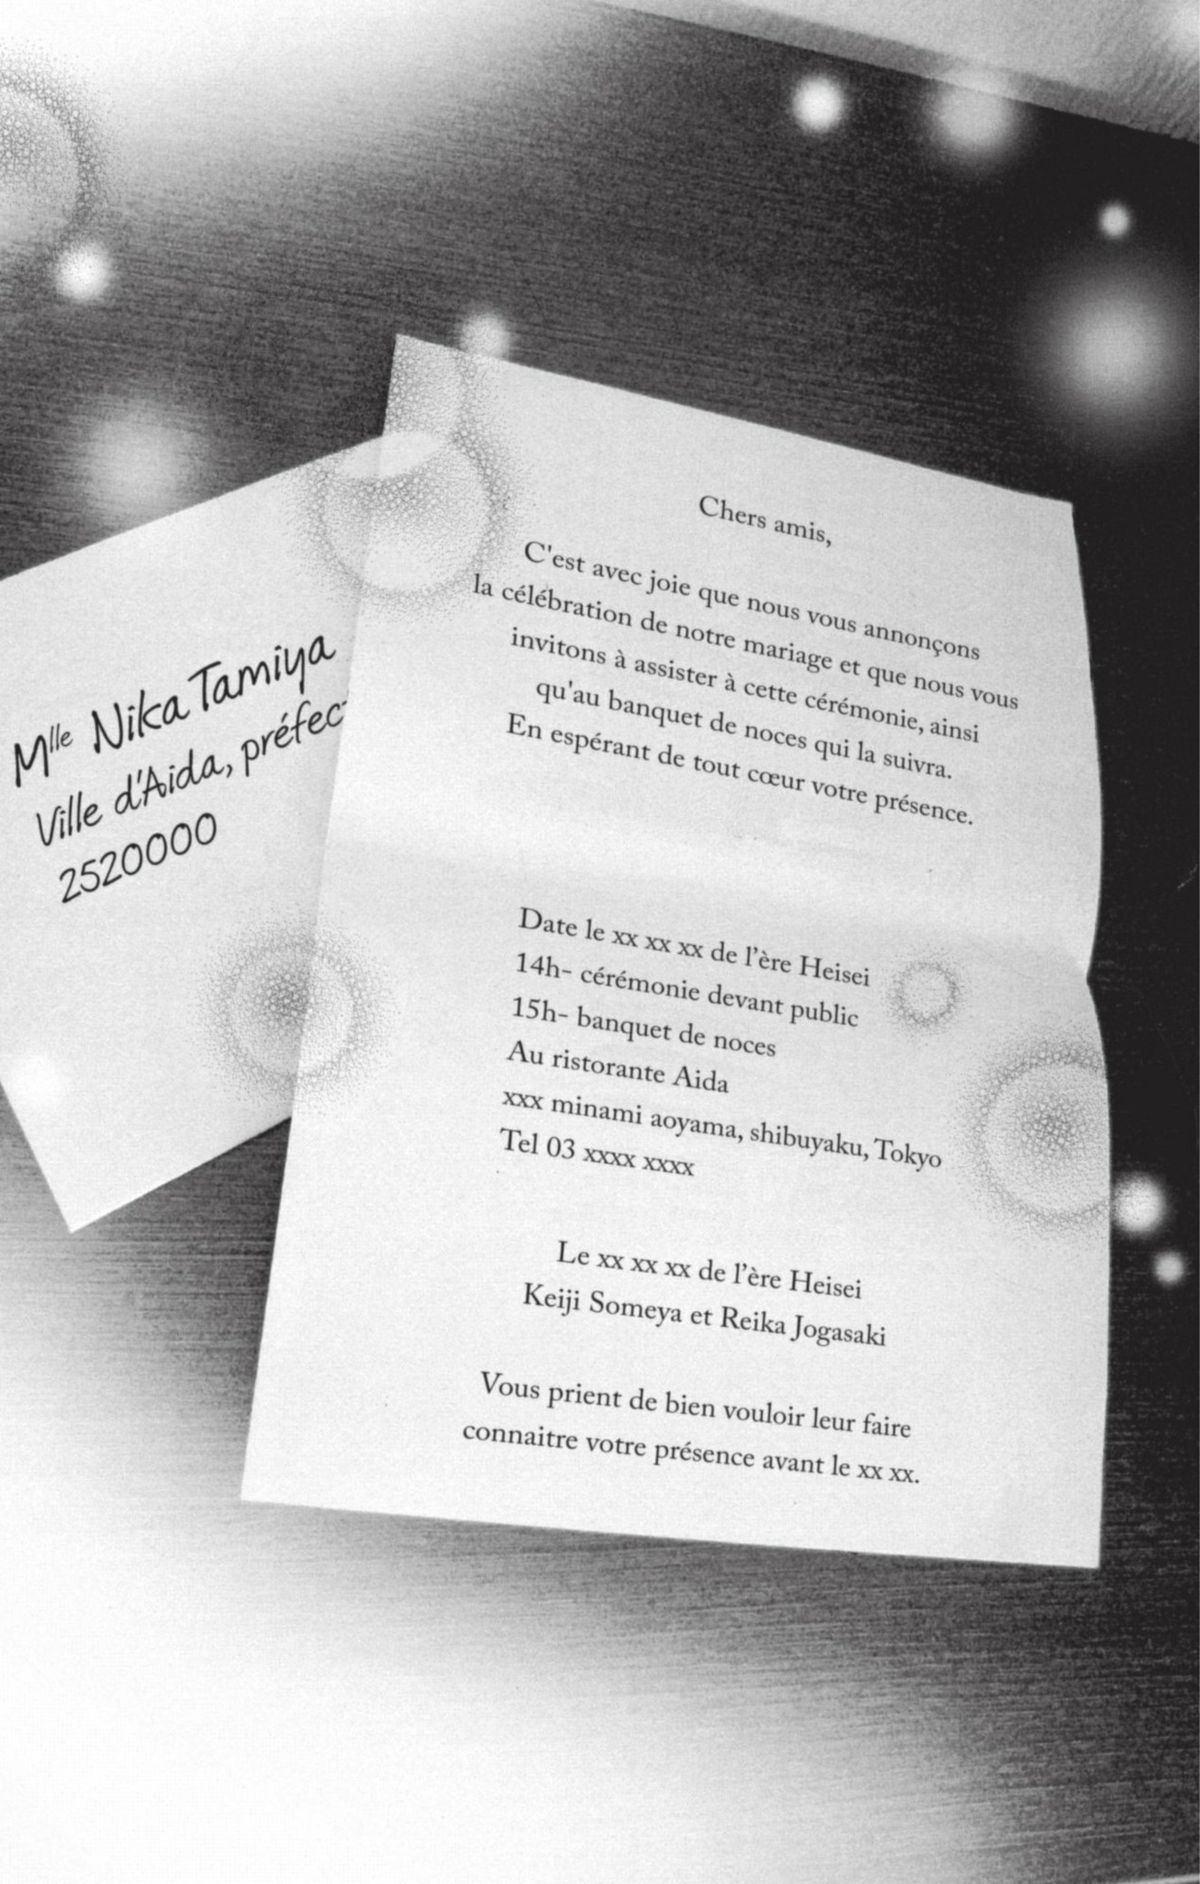 Mlle Nika Tamiya
Ville d'Aida, préfec
2520000
Chers amis,
C'est avec joie que nous vous annonçons
la célébration de notre mariage et que nous vous
invitons à assister à cette cérémonie, ainsi
qu'au banquet de noces qui la suivra.
En espérant de tout cœur votre présence.
Date le xx xx xx de l'ère Heisei
14h- cérémonie devant public
15h- banquet de noces
Au ristorante Aida
xxx minami aoyama, shibuyaku, Tokyo
Tel 03 xxxx xxxx
Le xx xx xx de l'ère Heisei
Keiji Someya et Reika Jogasaki
Vous prient de bien vouloir leur faire
connaitre votre présence avant le xx xx.